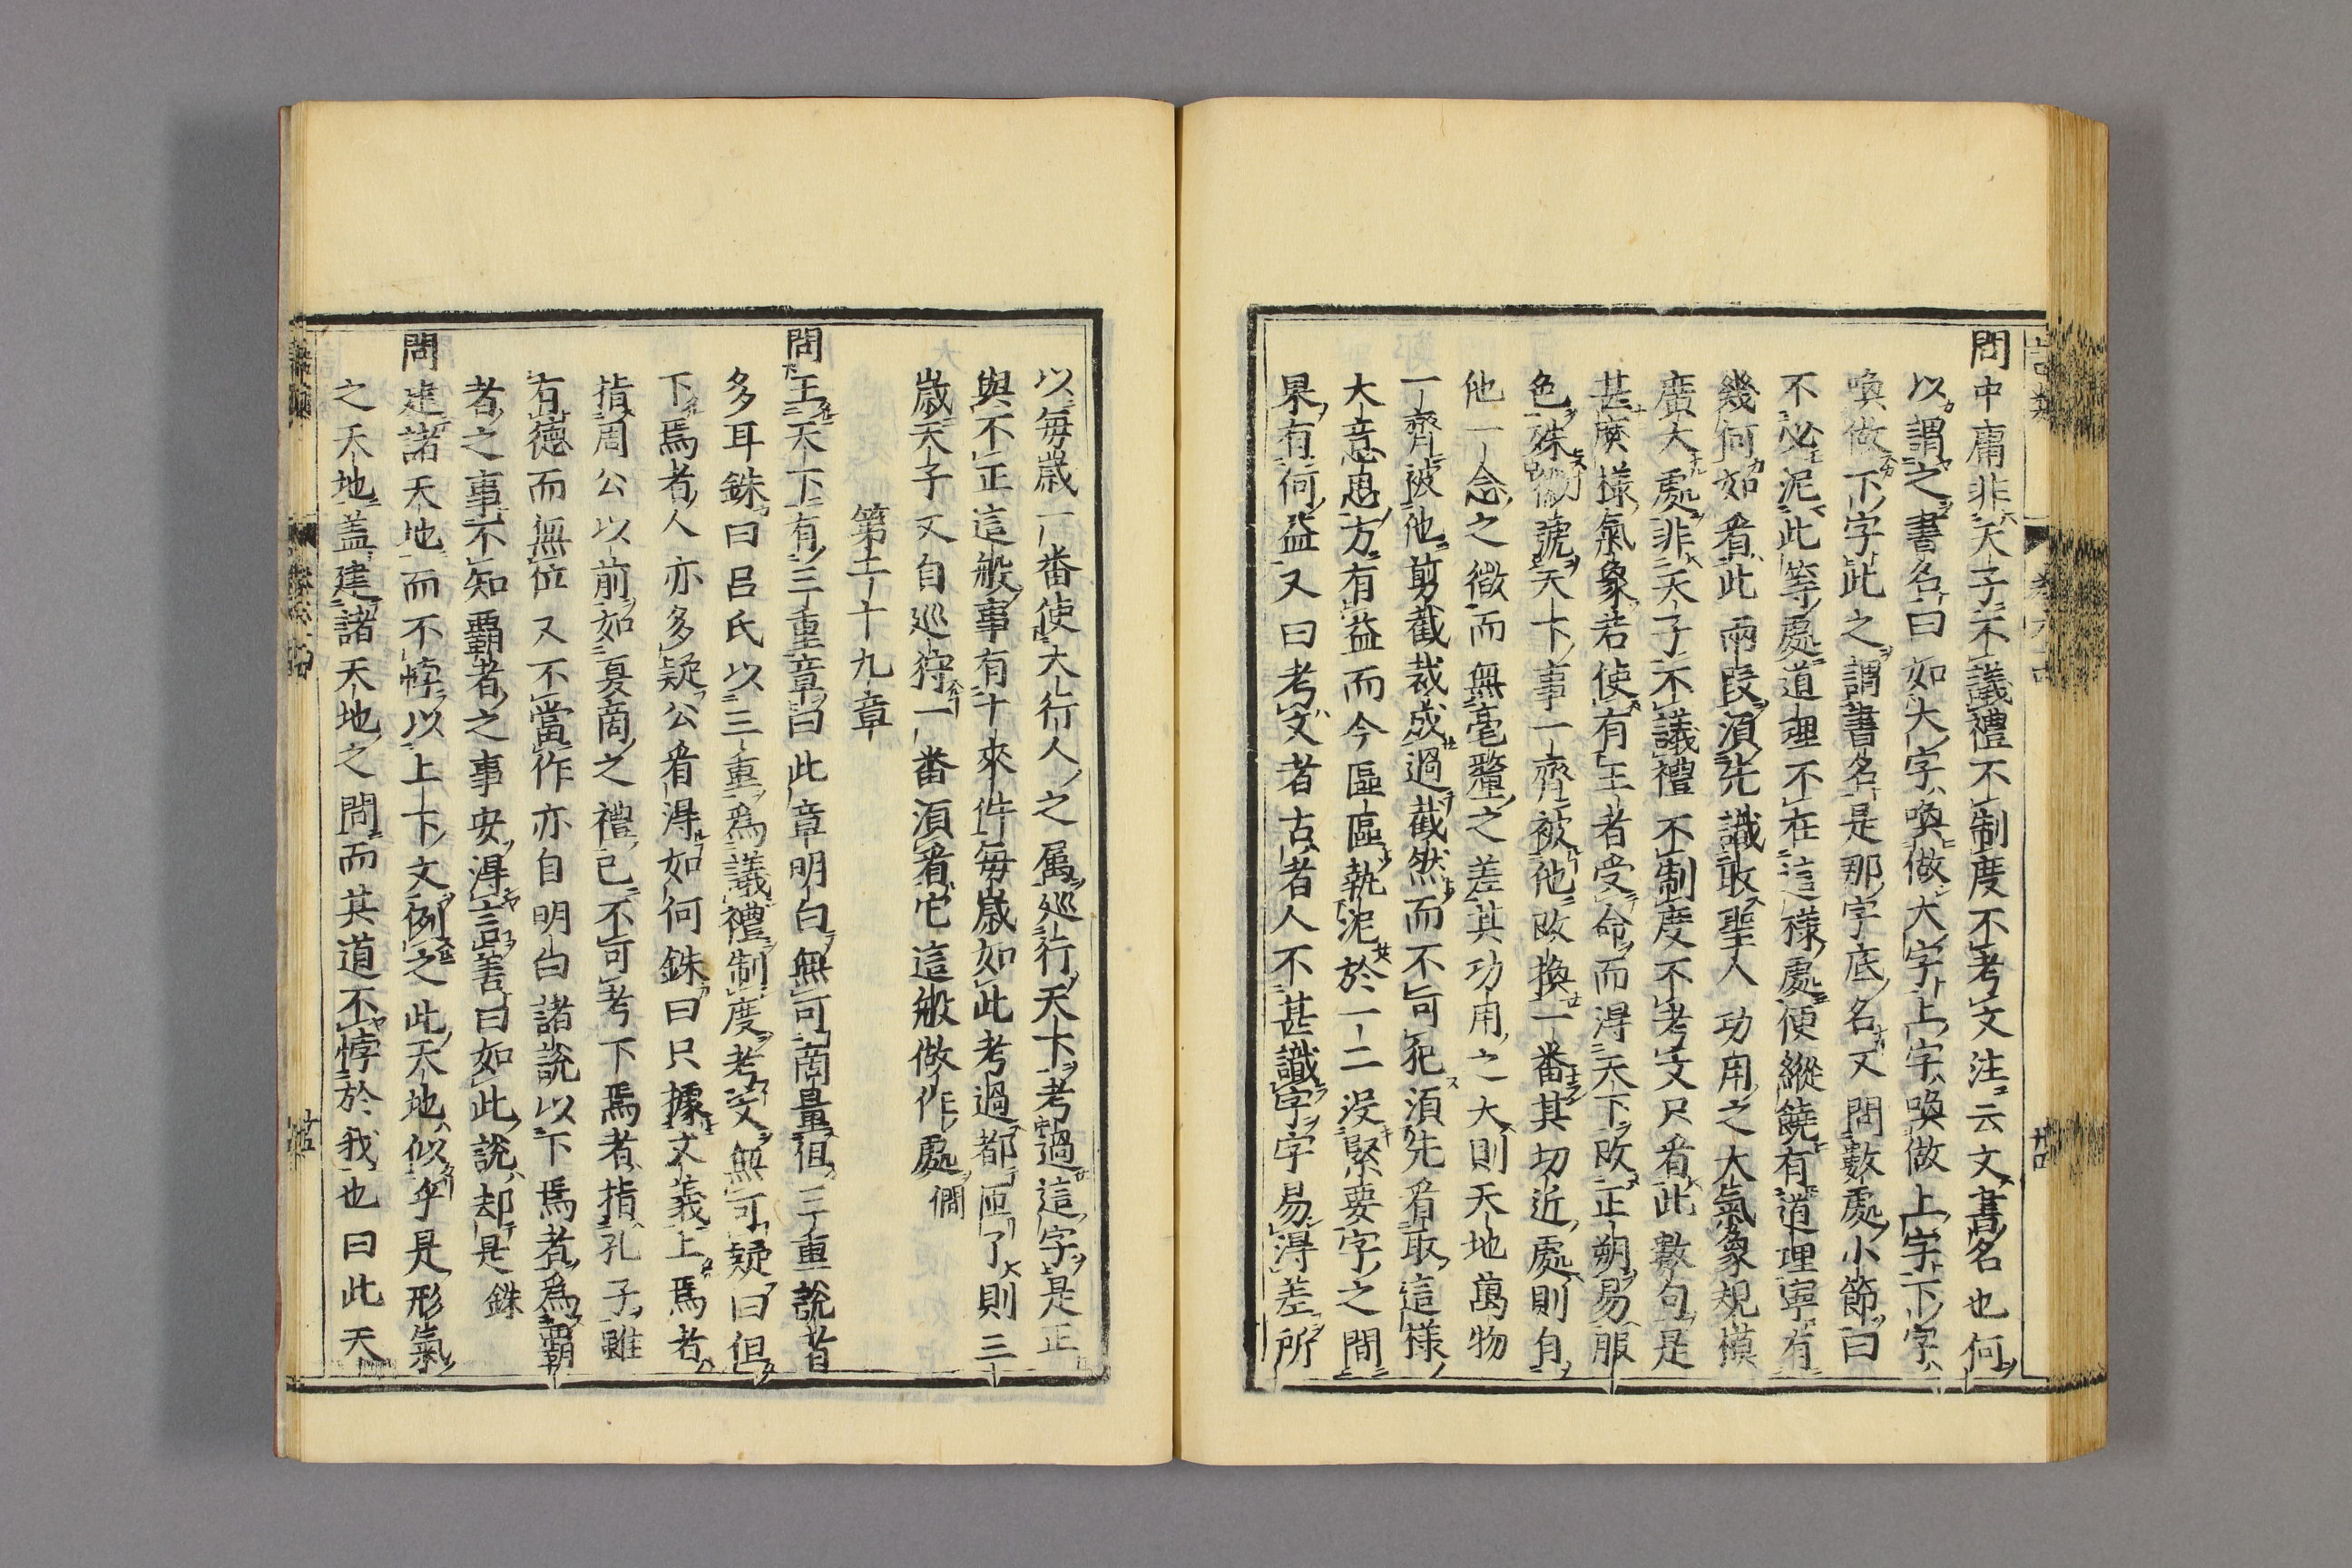 問中庸非天子不議禮不制度不考文注云文書名也何
以謂之書名曰如大字喚做大字上字喚做上字下字
喚做下字此之謂書名是那字底名又問數處小節曰
不必泥此等處道理不在這樣處便縱饒有道理寧有
幾何如看此兩段須先識取聖人功用之大氣象規模
廣大處非天子不議禮不制度不考文只看此數句是
甚麽樣氣象若使有王者受命而得天下改正朔易服
色殊徽號天下事一齊被他改換一番其切近處則自
他一念之微而無毫釐之差其功用之大則天地萬物
一齊被他剪截裁成過截然而不可犯須先看取這樣
大意思方有益而今區區執泥於一二沒緊要字之間
果有何益又曰考文者古者人不甚識字字易得差所
以每歲一番使大行人之屬巡行天下考過這字是正
與不正這般事有十來件每歲如此考過都匝了則三
歲天子又自巡狩一番須看它這般做作處僩
第二十九章
問王天下有三重章曰此章明白無可商量但三重說者
多耳銖曰呂氏以三重爲議禮制度考文無可疑曰但
下焉者人亦多疑公看得如何銖曰只據文義上焉者
指周公以前如夏商之禮已不可考下焉者指孔子雖
有德而無位又不當作亦自明白諸說以下焉者爲霸
者之事不知霸者之事安得言善曰如此說却是銖
問建諸天地而不悖以上下文例之此天地似乎是形氣
之天地盖建諸天地之間而其道不悖於我也曰此天